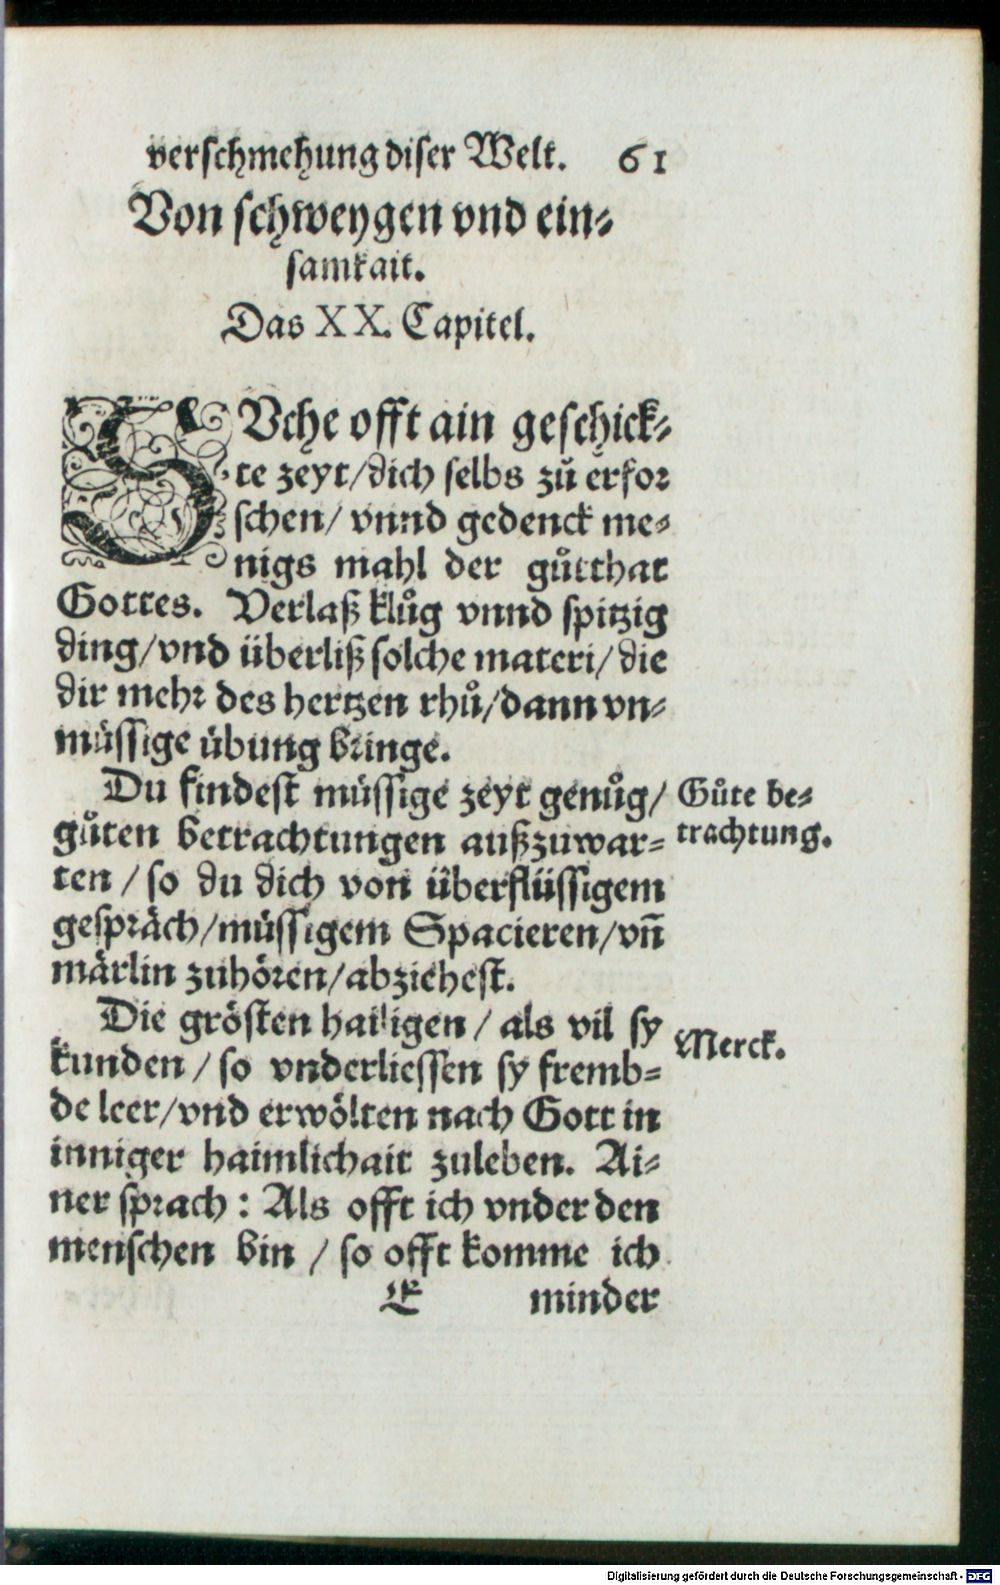 verschmehung diser Welt. 61
Von schweygen vnd ein⸗
samkait.
Das XX. Capitel.
SVche offt ain geschick⸗
te zeyt/dich selbs zů erfor
schen/ vnnd gedenck me⸗
nigs mahl der gůtthat
Gottes. Verlaß klůg vnnd spitzig
ding/vnd überliß solche materi/die
dir mehr des hertzen rhů/dann vn⸗
müssige übung bringe.
Du findest müssige zeyt genůg/
Gůte be⸗
gůten betrachtungen außzuwar⸗
trachtung.
ten / so du dich von überflüssigem
gespräch/müssigem Spacieren/vn̄
märlin zuhören/abziehest.
Die grösten hailigen / als vil sy
Merck.
kunden / so vnderliessen sy fremb⸗
de leer/vnd erwölten nach Gott in
inniger haimlichait zuleben. Ai⸗
ner sprach : Als offt ich vnder den
menschen bin / so offt komme ich
E minder
Digitalisierung gefördert durch die Deutsche Forschungsgemeinschaft - DFG